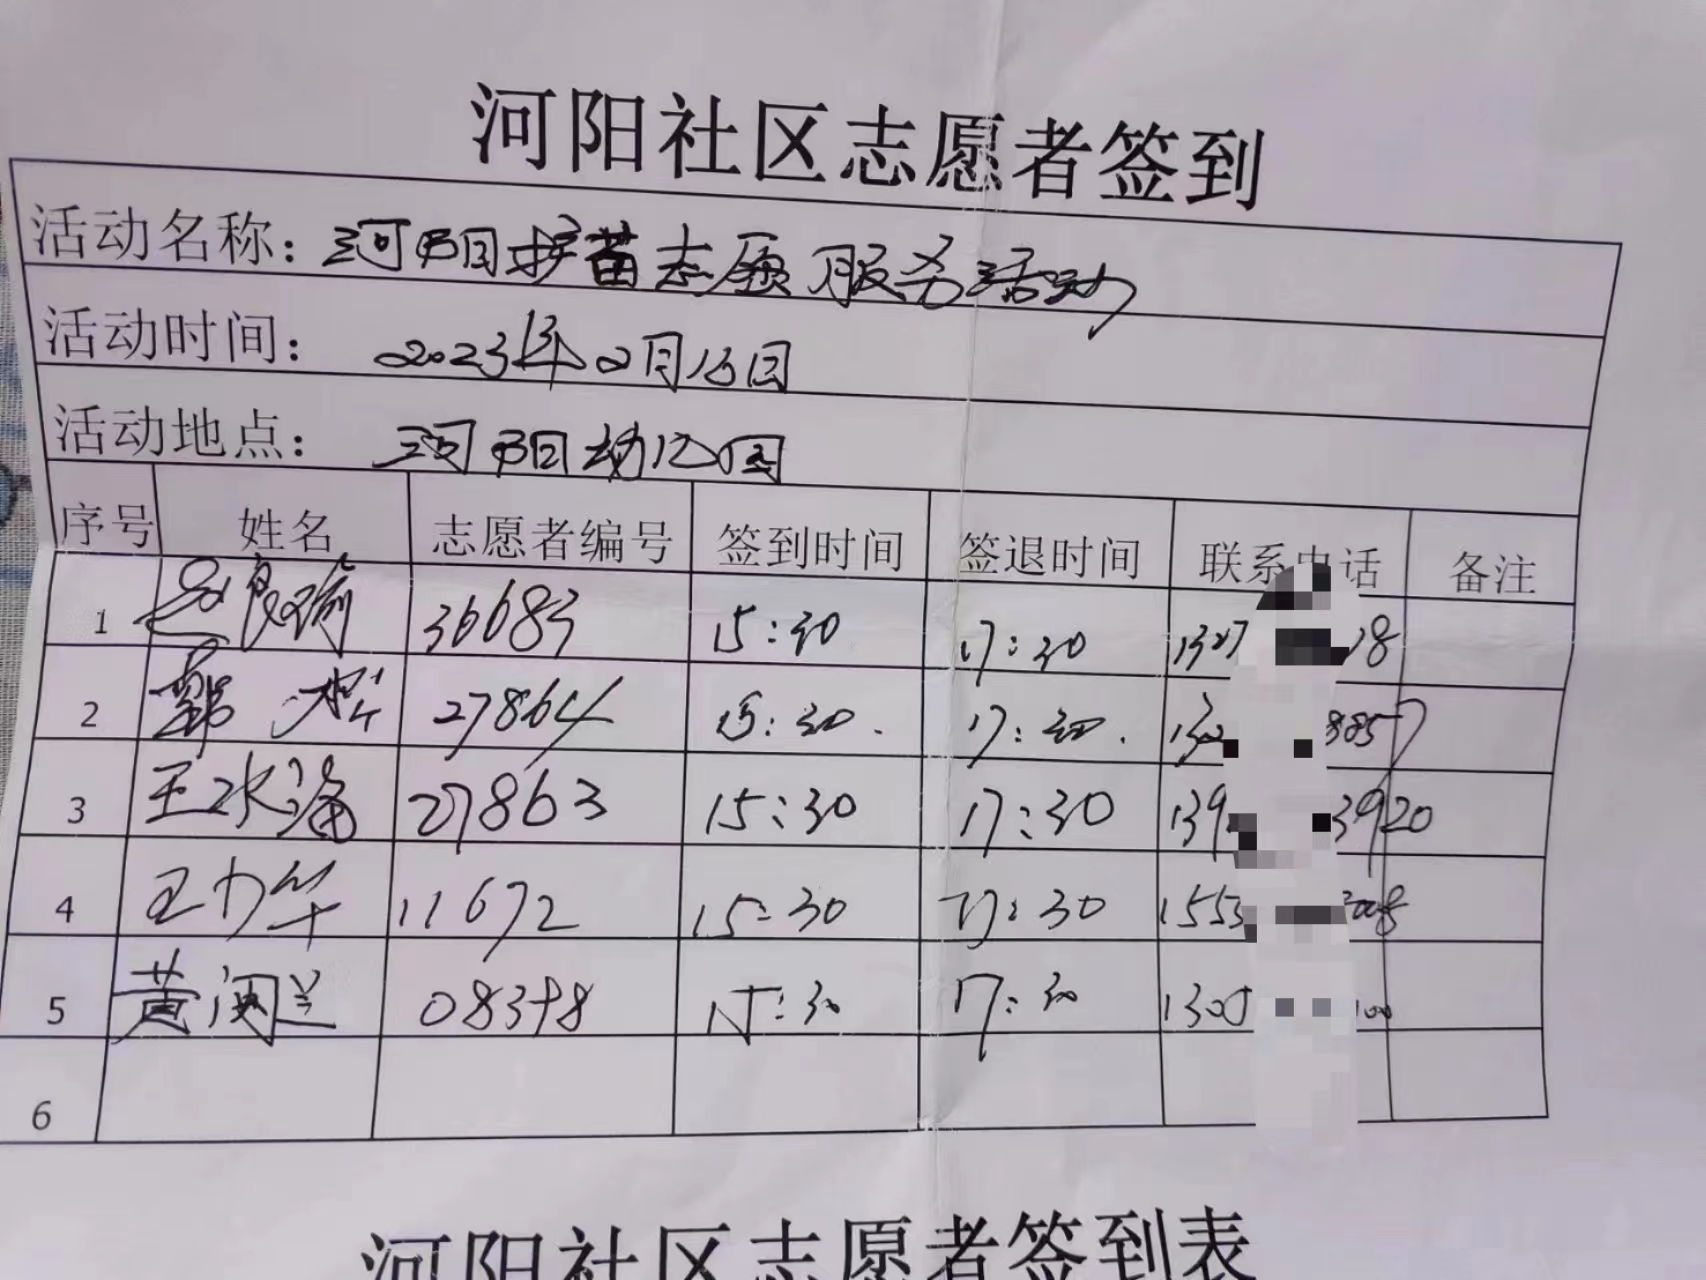 河阳社区志愿者签到
活动名称：河阳护苗志愿服务活动
活动时间： 2023年2月16日
活动地点： 河阳幼儿园
序号 姓名 志愿者编号 签到时间 签退时间 联系电话 备注
1 36683 15:30 17:30 1327 18
2 郭 27864 15:30. 17:30. 132 8857
3 王 27863 15:30 17:30 139 3920
4 王力华 11672 15:30 17:30 1555 3008
5 黄闽兰 08398 15:30 17:30 1305 100
6
河阳社区志愿者签到表